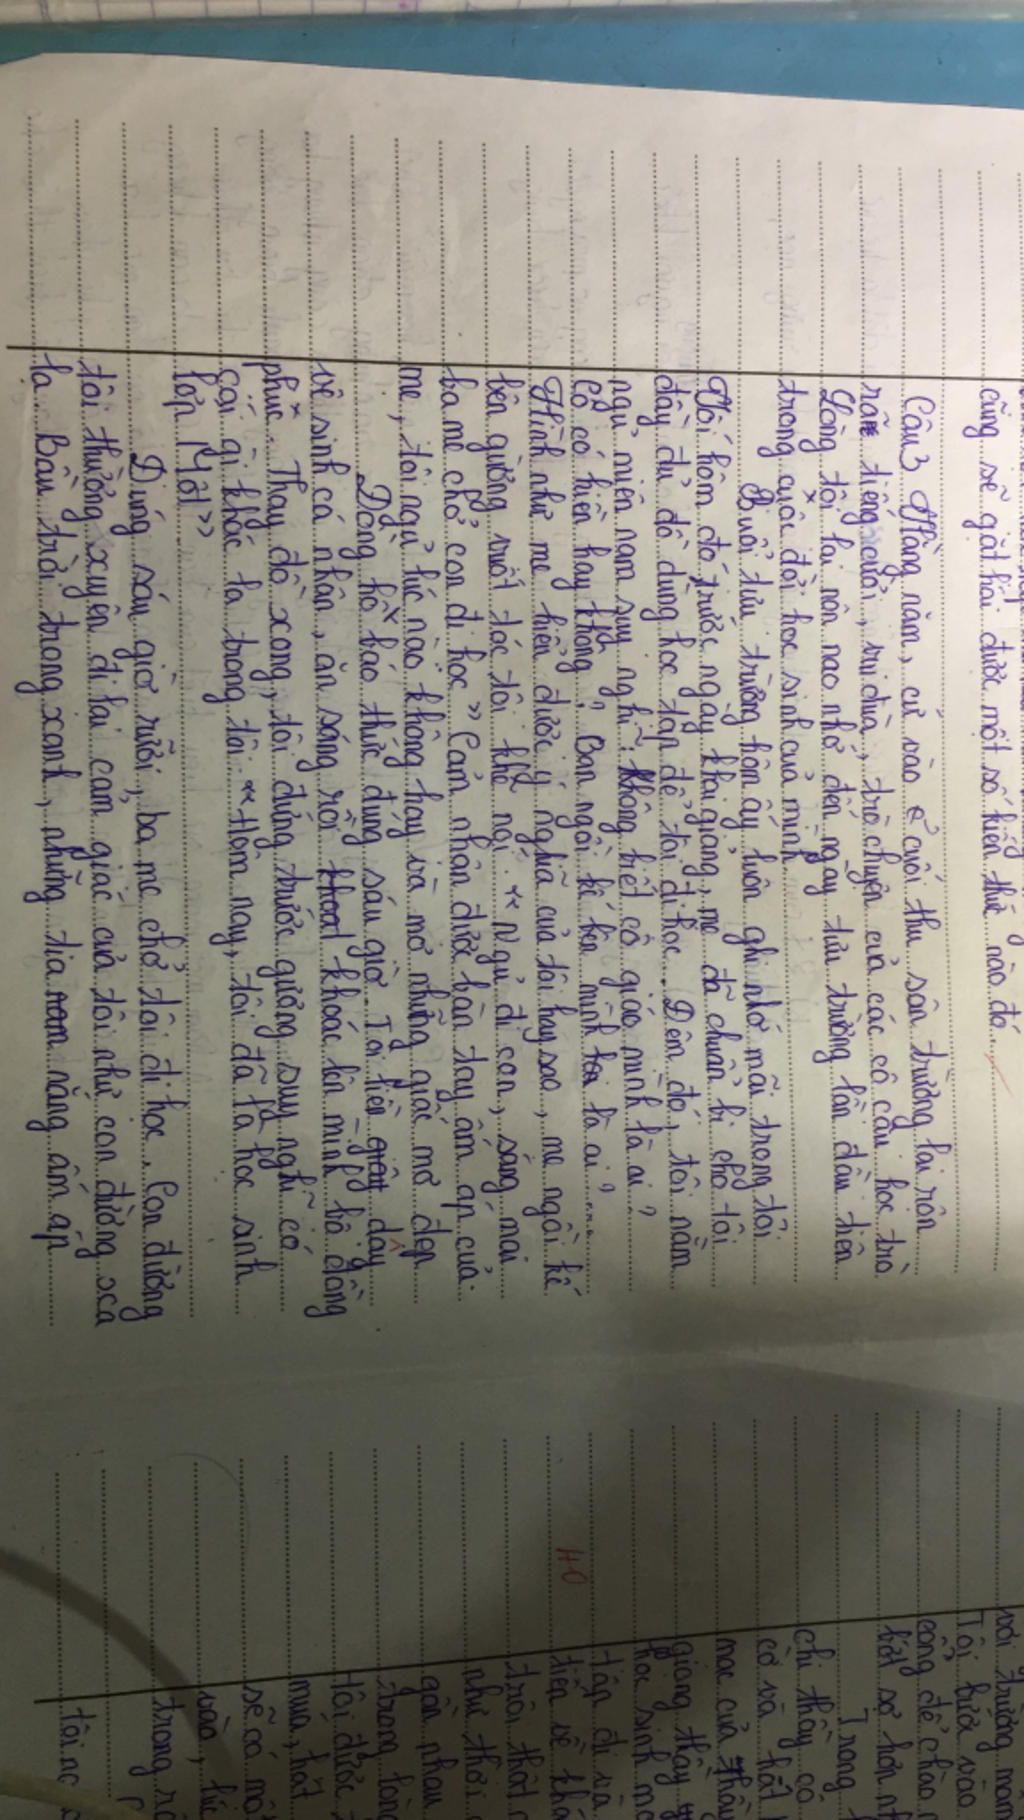 cũng sẽ gặt hái được một số kiến thức nào đó...
Câu 3 Hằng năm, cứ vào cuối thu sân trường lại rộn
rã tiếng cười, vui đùa, trò chuyện của các cô cậu học trò.
Lòng tôi lại nôn nao nhớ đến ngày tựu trường lần đầu tiên
trong cuộc đời học sinh của mình.
Buổi tựu trường hôm ấy luôn ghi nhớ mãi trong tôi
Tối hôm đó, trước ngày khai giảng, mẹ đã chuẩn bị cho tôi
đầy đủ đồ dùng học tập để tôi đi học. Đêm đó, tôi nằm
ngủ, miên man suy nghĩ: không biết cô giáo mình là ai?
Cô có hiền hay không? Bạn ngồi kế bên mình là ai?...
Hình như mẹ hiểu được ý nghĩa của tôi hay sao, mẹ ngồi kế
bên giường vuốt tóc tôi khẽ nói: "Ngủ đi con, sáng mai
ba mẹ chở con đi học" Cảm nhận được bàn tay ấm áp của
mẹ, tôi ngủ lúc nào không hay và mơ những giấc mơ đẹp
Đồng hồ báo thức đúng sáu giờ. Tôi liền dậy
vệ sinh cá nhân, ăn sáng rồi khoác lên mình bộ đồng
phục. Thay đồ xong, tôi đứng trước gương suy nghĩ có
cái gì khác lạ trong tôi: "Hôm nay, tôi đã là học sinh
lớp Một"
Đúng sáu giờ rưỡi, ba mẹ chở tôi đi học. Con đường
tôi thường xuyên đi lại cảm giác của tôi như con đường xa
lạ. Bầu trời trong xanh, những tia nắng ấm áp
với trường
Tôi bước vào
cổng để chào
Trong
chị thầy cô
cờ và hát
mạc của thầy
giảng thầy
học sinh
tập đi và
tiến về
trôi thật
như thời
gần nhau
trong lòng
tôi được
múa, hát
sẽ có
vào, lúc
trong
40